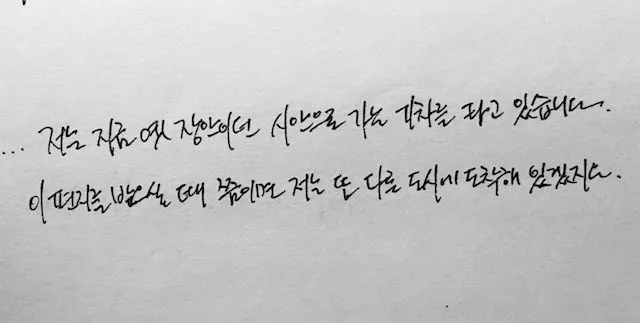 ... 저는 지금 옛 장안이던 시안으로 가는 기차를 타고 있습니다.
이 편지를 받으실 때 쯤이면 저는 또 다른 도시에 도착해 있겠지요.